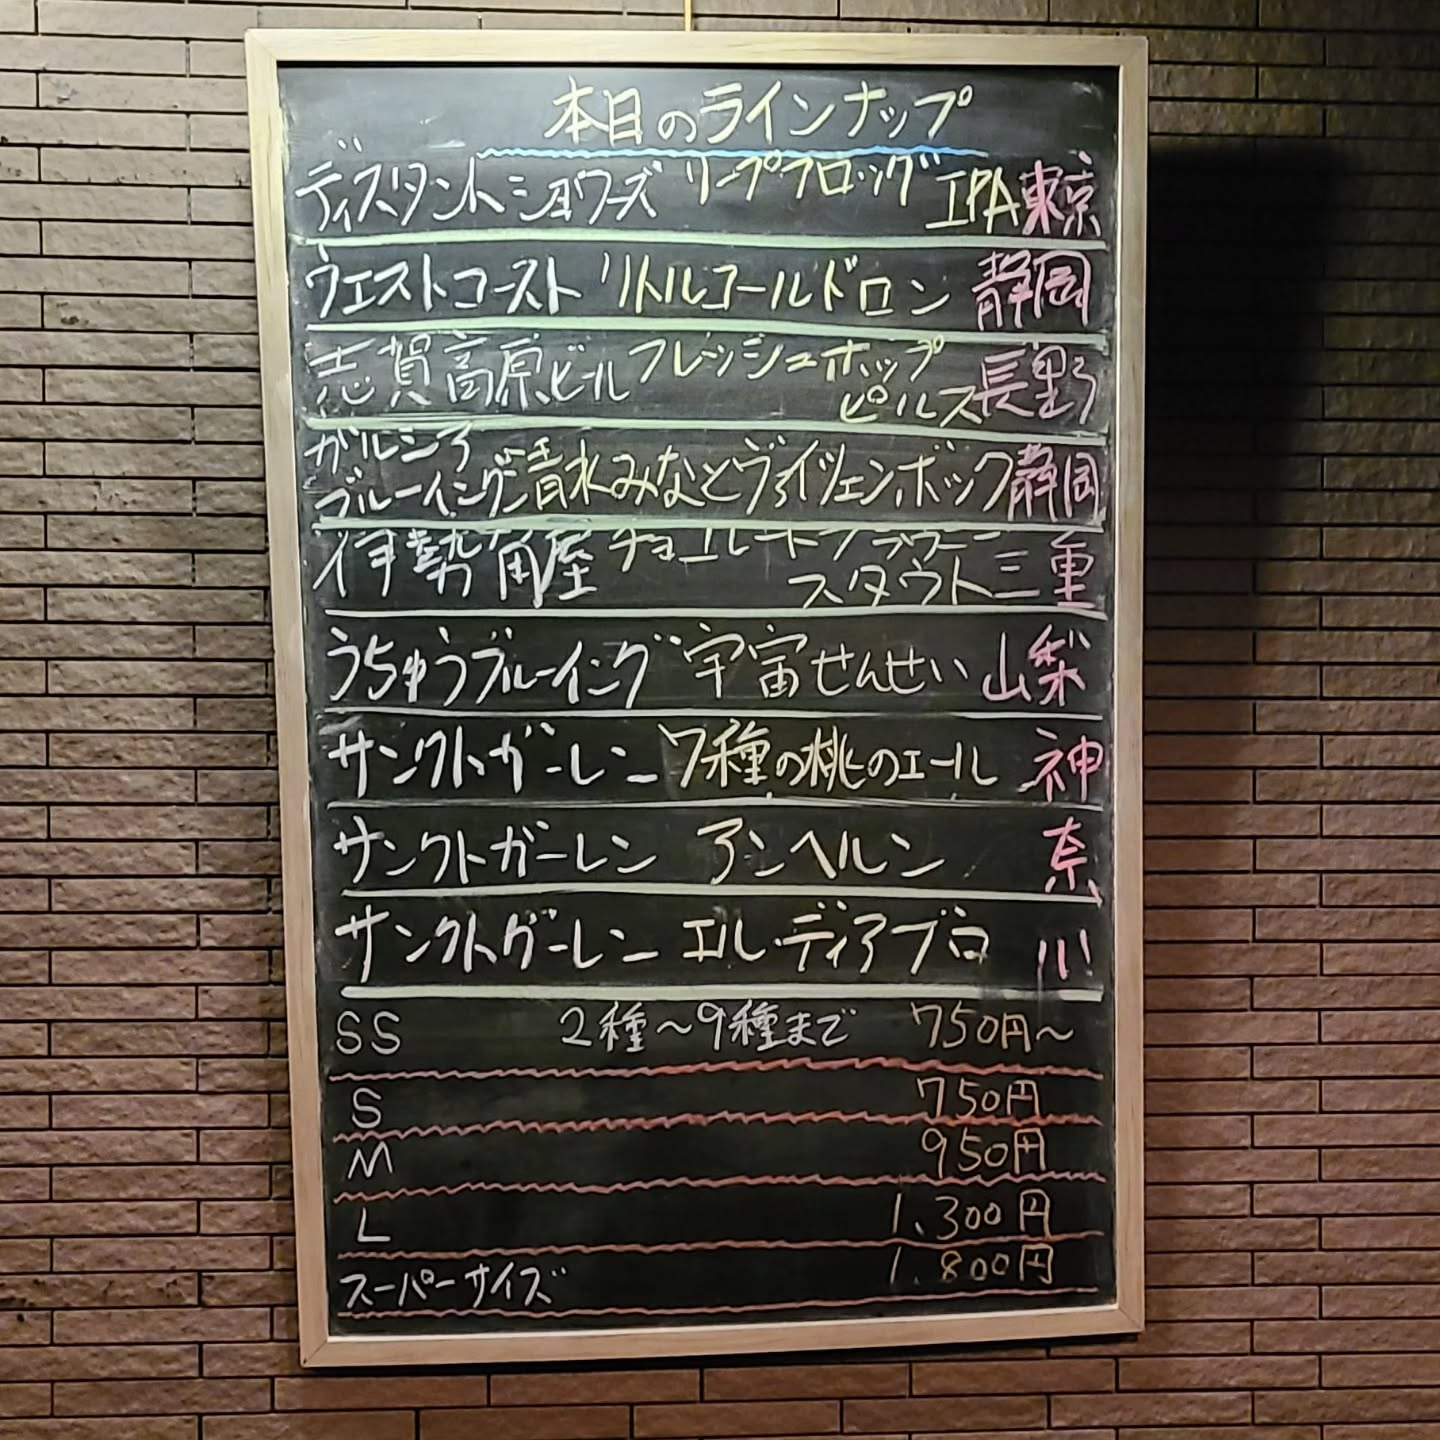 本日のラインナップ
ディスタントショワーズ リープフロッグ IPA 東京
ウエストコースト リトルコールドロン 静岡
志賀高原ビール フレッシュホップ
ピルス 長野
ガルシア
ブルーイング 清水みなとヴァイツェンボック 静岡
伊勢角屋 チョコレートブラウニー
スタウト 三重
うちゅうブルーイング 宇宙せんせい 山梨
サンクトガーレン 7種の桃のエール 神
サンクトガーレン アンヘルン 奈
サンクトガーレン エル・ディアブロ 川
SS 2種～9種まで 750円～
S 750円
M 950円
L 1,300円
スーパーサイズ 1,800円